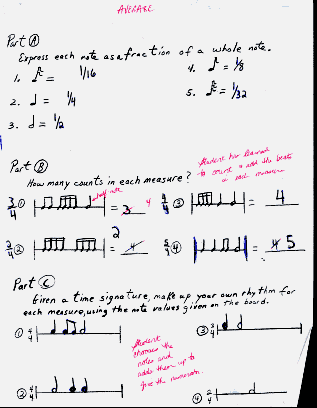 AVERAGE
Part A
Express each note as a fraction of a whole note.
1. = 1/16
4. = 1/8
2. = 1/4
5. = 1/32
3. = 1/2
Part B
Student has learned
to count & add the beats
in each measure
How many counts in each measure?
half note
3/4 ① = 3 4
4/4 ③ = 4
2
②  = 4
④ = 4 5
Part C
Given a time signature, make up your own rhythm for
each measure, using the note values given on the board.
① 4/4
③ 3/4
Student
chooses the
notes and
adds them up to
give the numerator.
② 4/4
④ 2/4